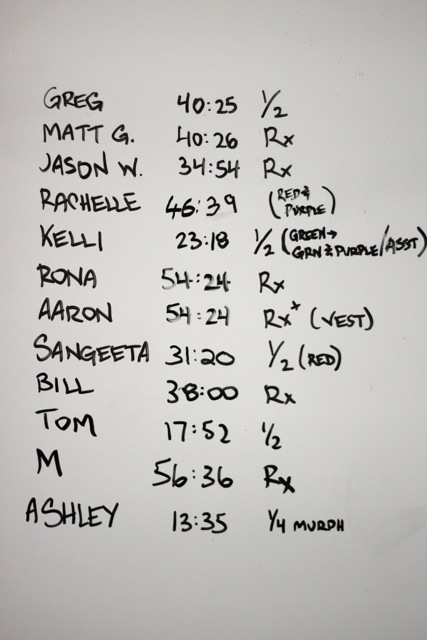 GREG 40:25 1/2
MATT G. 40:26 Rx
JASON W. 34:54 Rx
RACHELLE 46:39 (RED & PURPLE)
KELLI 23:18 1/2 (GREEN → GRN & PURPLE/ASST)
RONA 54:24 Rx
AARON 54:24 Rx+ (VEST)
SANGEETA 31:20 1/2 (RED)
BILL 38:00 Rx
TOM 17:52 1/2
M 56:36 Rx
ASHLEY 13:35 1/4 MURPH